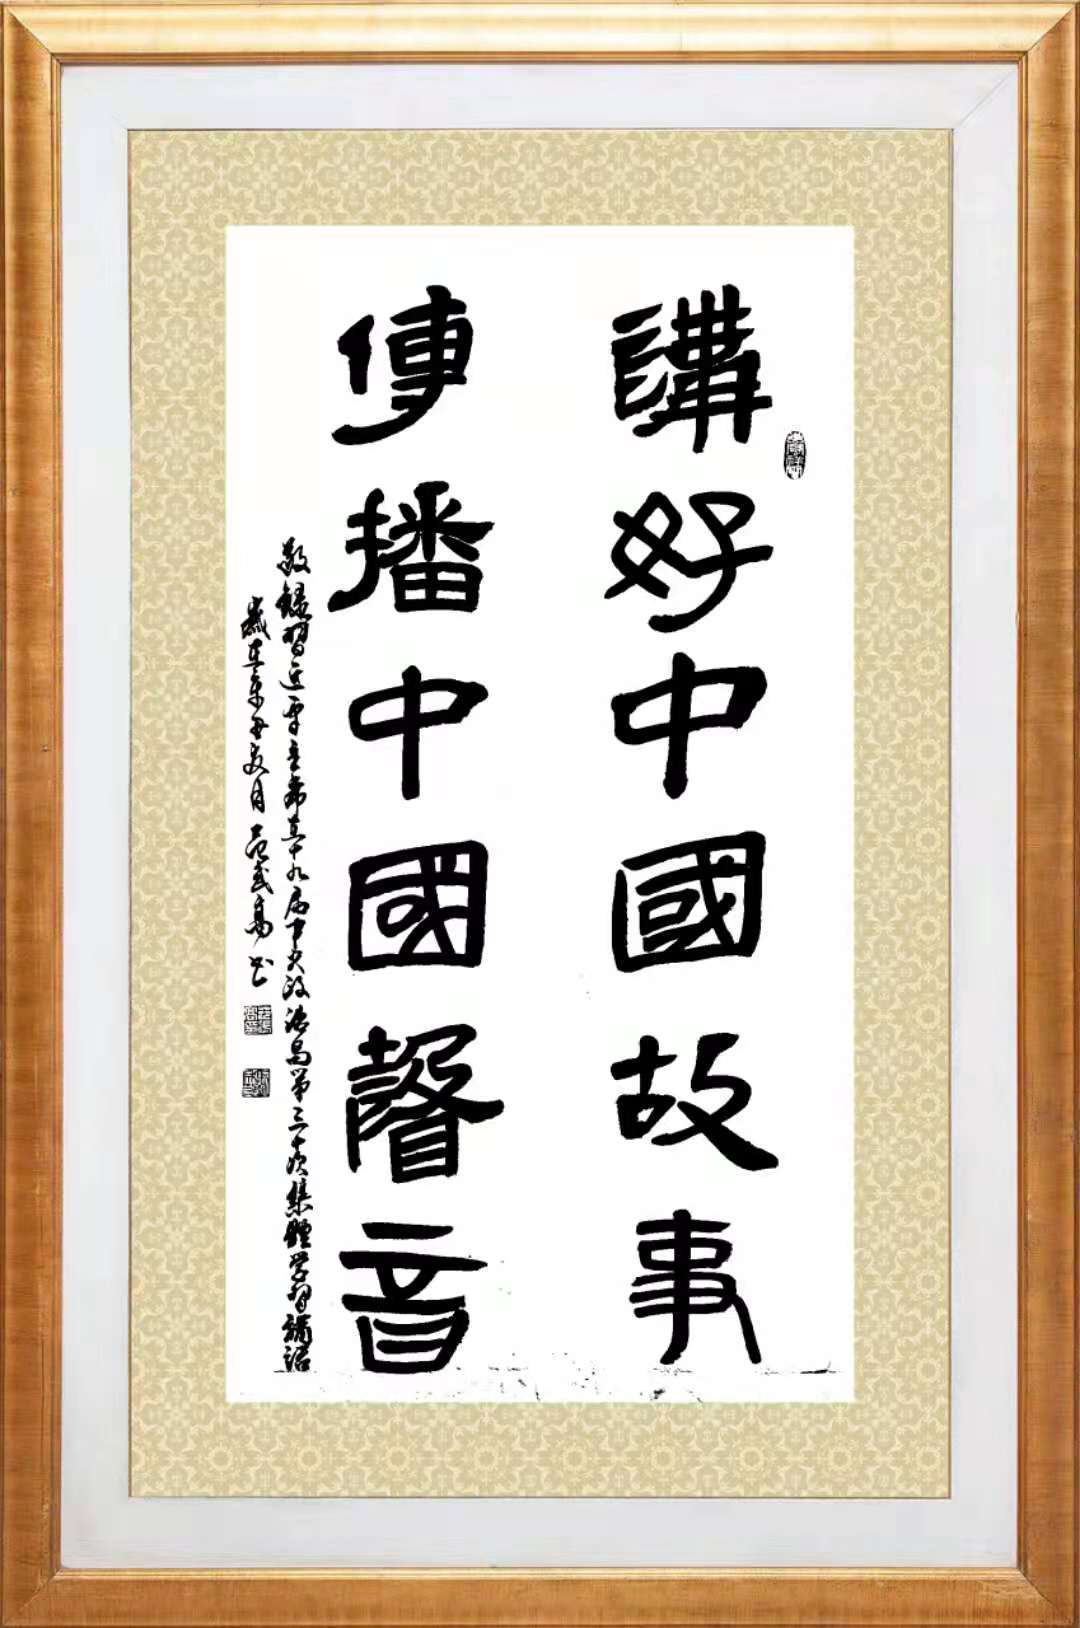 講好中國故事
傳播中國聲音
敬録習近平主席在十九届中央政治局第三十次集體学習講話
歲在辛丑夏月范武易书